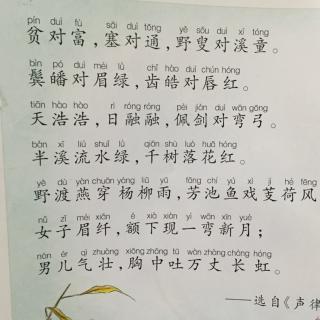 pín duì fù sāi duì tōng yě sǒu duì xī tóng
贫对富，塞对通，野叟对溪童。
bìn pó duì méi lǜ chǐ hào duì chún hóng
鬓皤对眉绿，齿皓对唇红。
tiān hào hào rì róng róng pèi jiàn duì wān gōng
天浩浩，日融融，佩剑对弯弓。
bàn xī liú shuǐ lǜ qiān shù luò huā hóng
半溪流水绿，千树落花红。
yě dù yàn chuān yáng liǔ yǔ fāng chí yú xì jì hé fēng
野渡燕穿杨柳雨，芳池鱼戏芰荷风
nǚ zǐ méi xiān é xià xiàn yì wān xīn yuè
女子眉纤，额下现一弯新月；
nán ér qì zhuàng xiōng zhōng tǔ wàn zhàng cháng hóng
男儿气壮，胸中吐万丈长虹。
——选自《声律